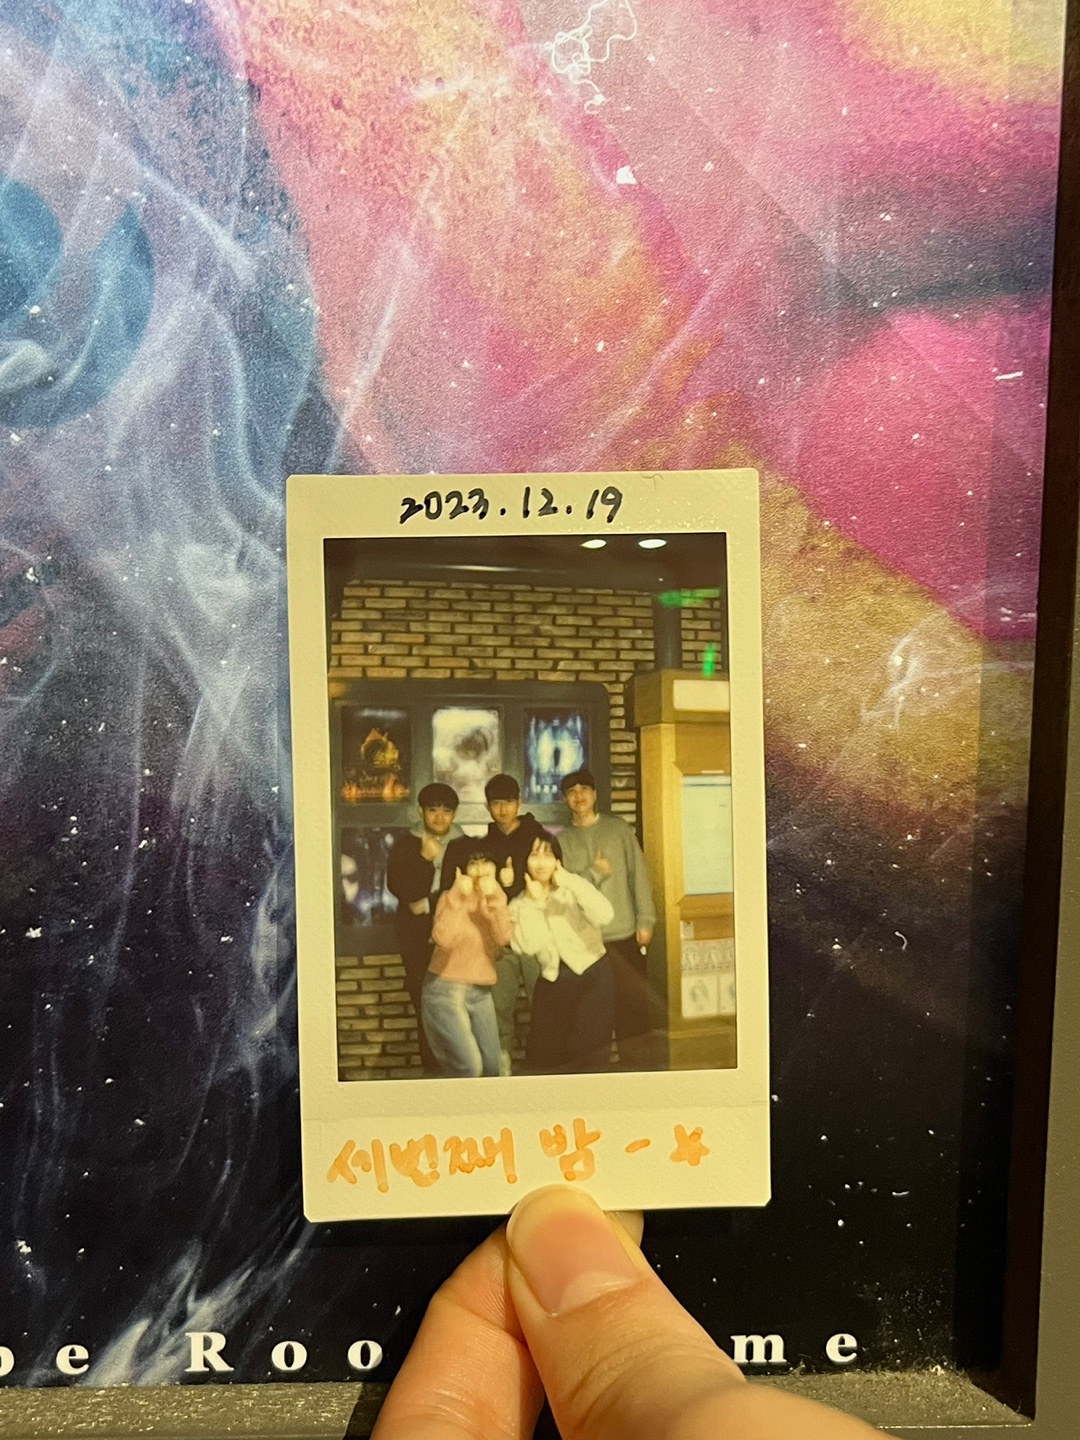 2023.12.19
세번째 밤 - ☆
pe Roo me